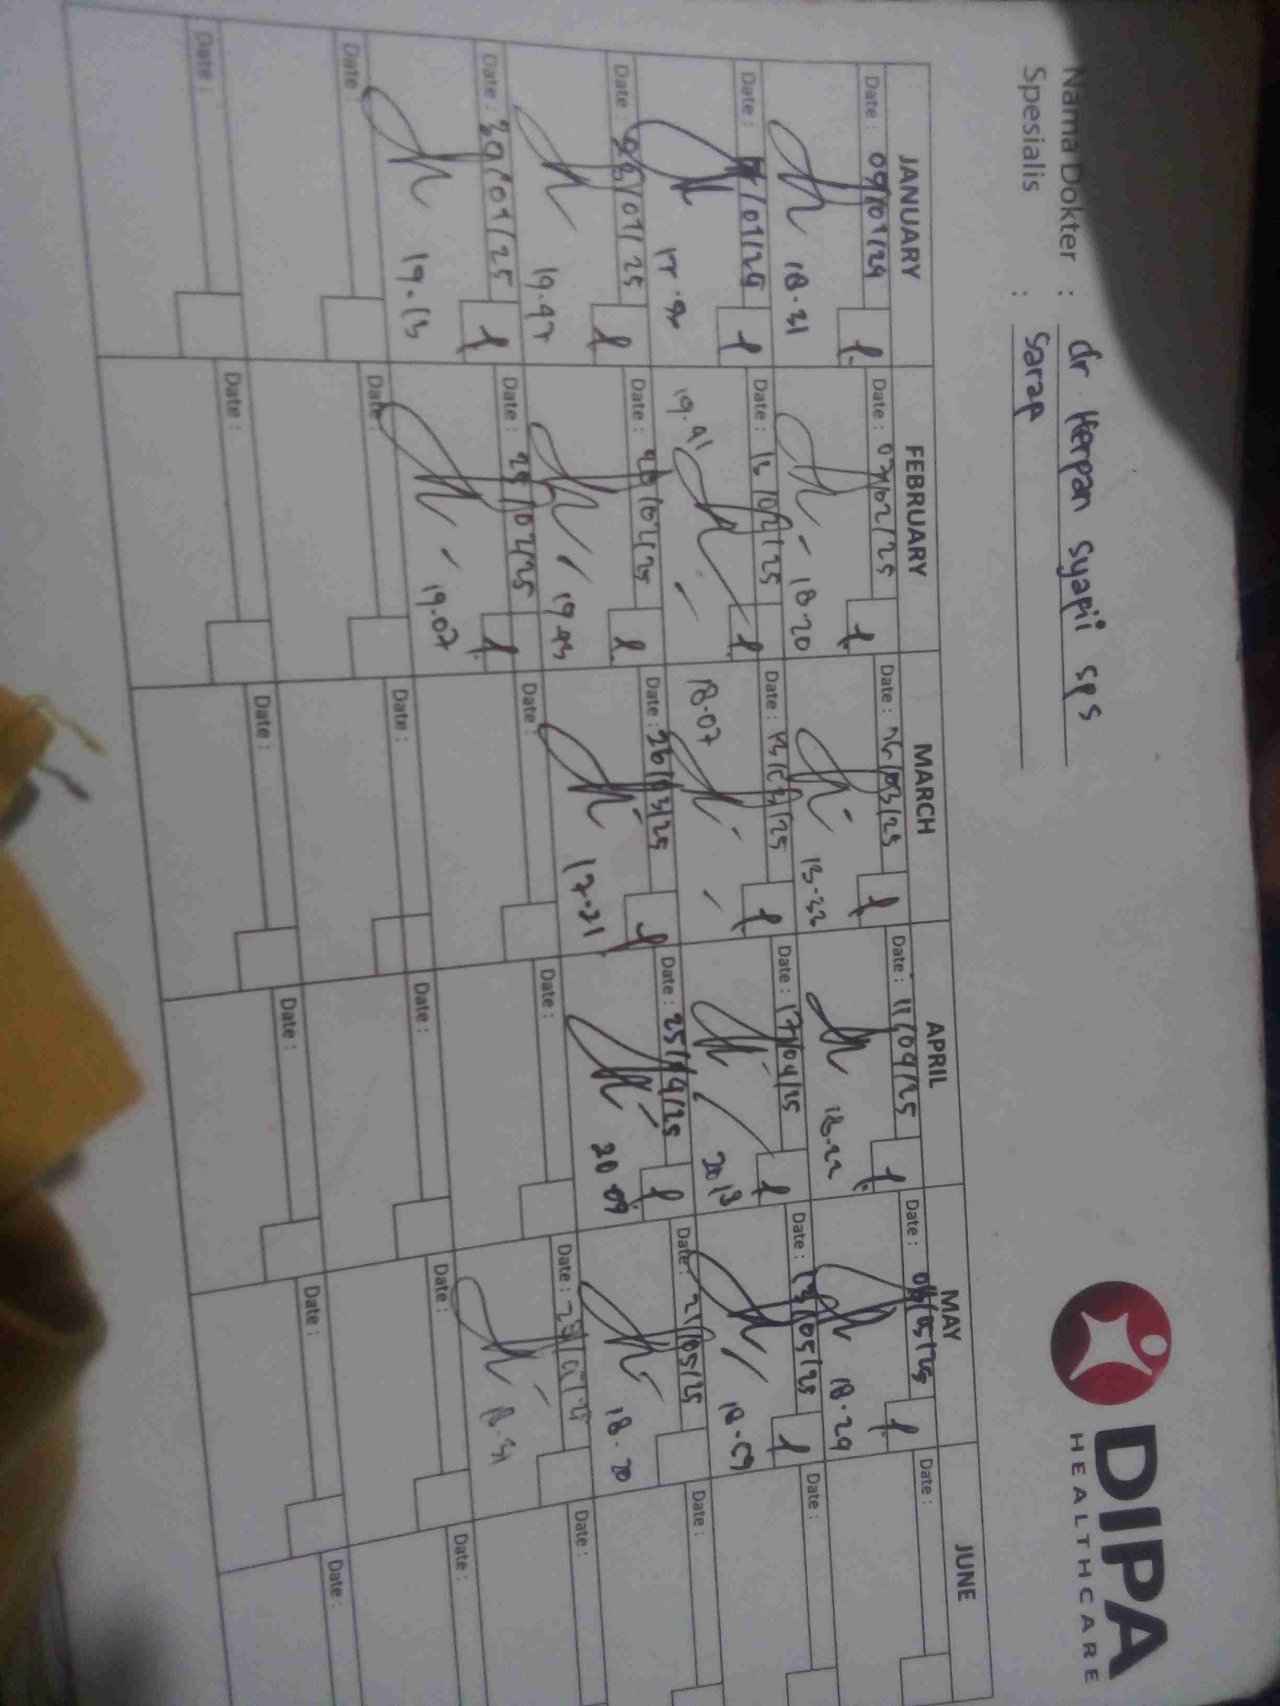 DIPA
HEALTHCARE
Nama Dokter : dr. Herpan syafii sps
Spesialis : Sarap
JANUARY FEBRUARY MARCH APRIL MAY JUNE
Date : 09/01/24 Date : 07/02/25 Date : /03/25 Date : 11/04/25 Date : /05/25 Date :
18.31 18.20 13.32 18.22 18.29
Date : /01/24 Date : 13/02/25 Date : 13/03/25 Date : 17/04/25 Date : 13/05/25 Date :
19.41 18.07 20.13 18.59
Date : /01/25 Date : /02/25 Date : 26/03/25 Date : 25/04/25 Date : 21/05/25 Date :
19.47 19.43 17.21 20.09 18.20
Date : 30/01/25 Date : 28/02/25 Date : Date : Date : Date :
19.13 19.07 18.31
Date : Date : Date : Date : Date : Date :
Date : Date : Date : Date : Date : Date :